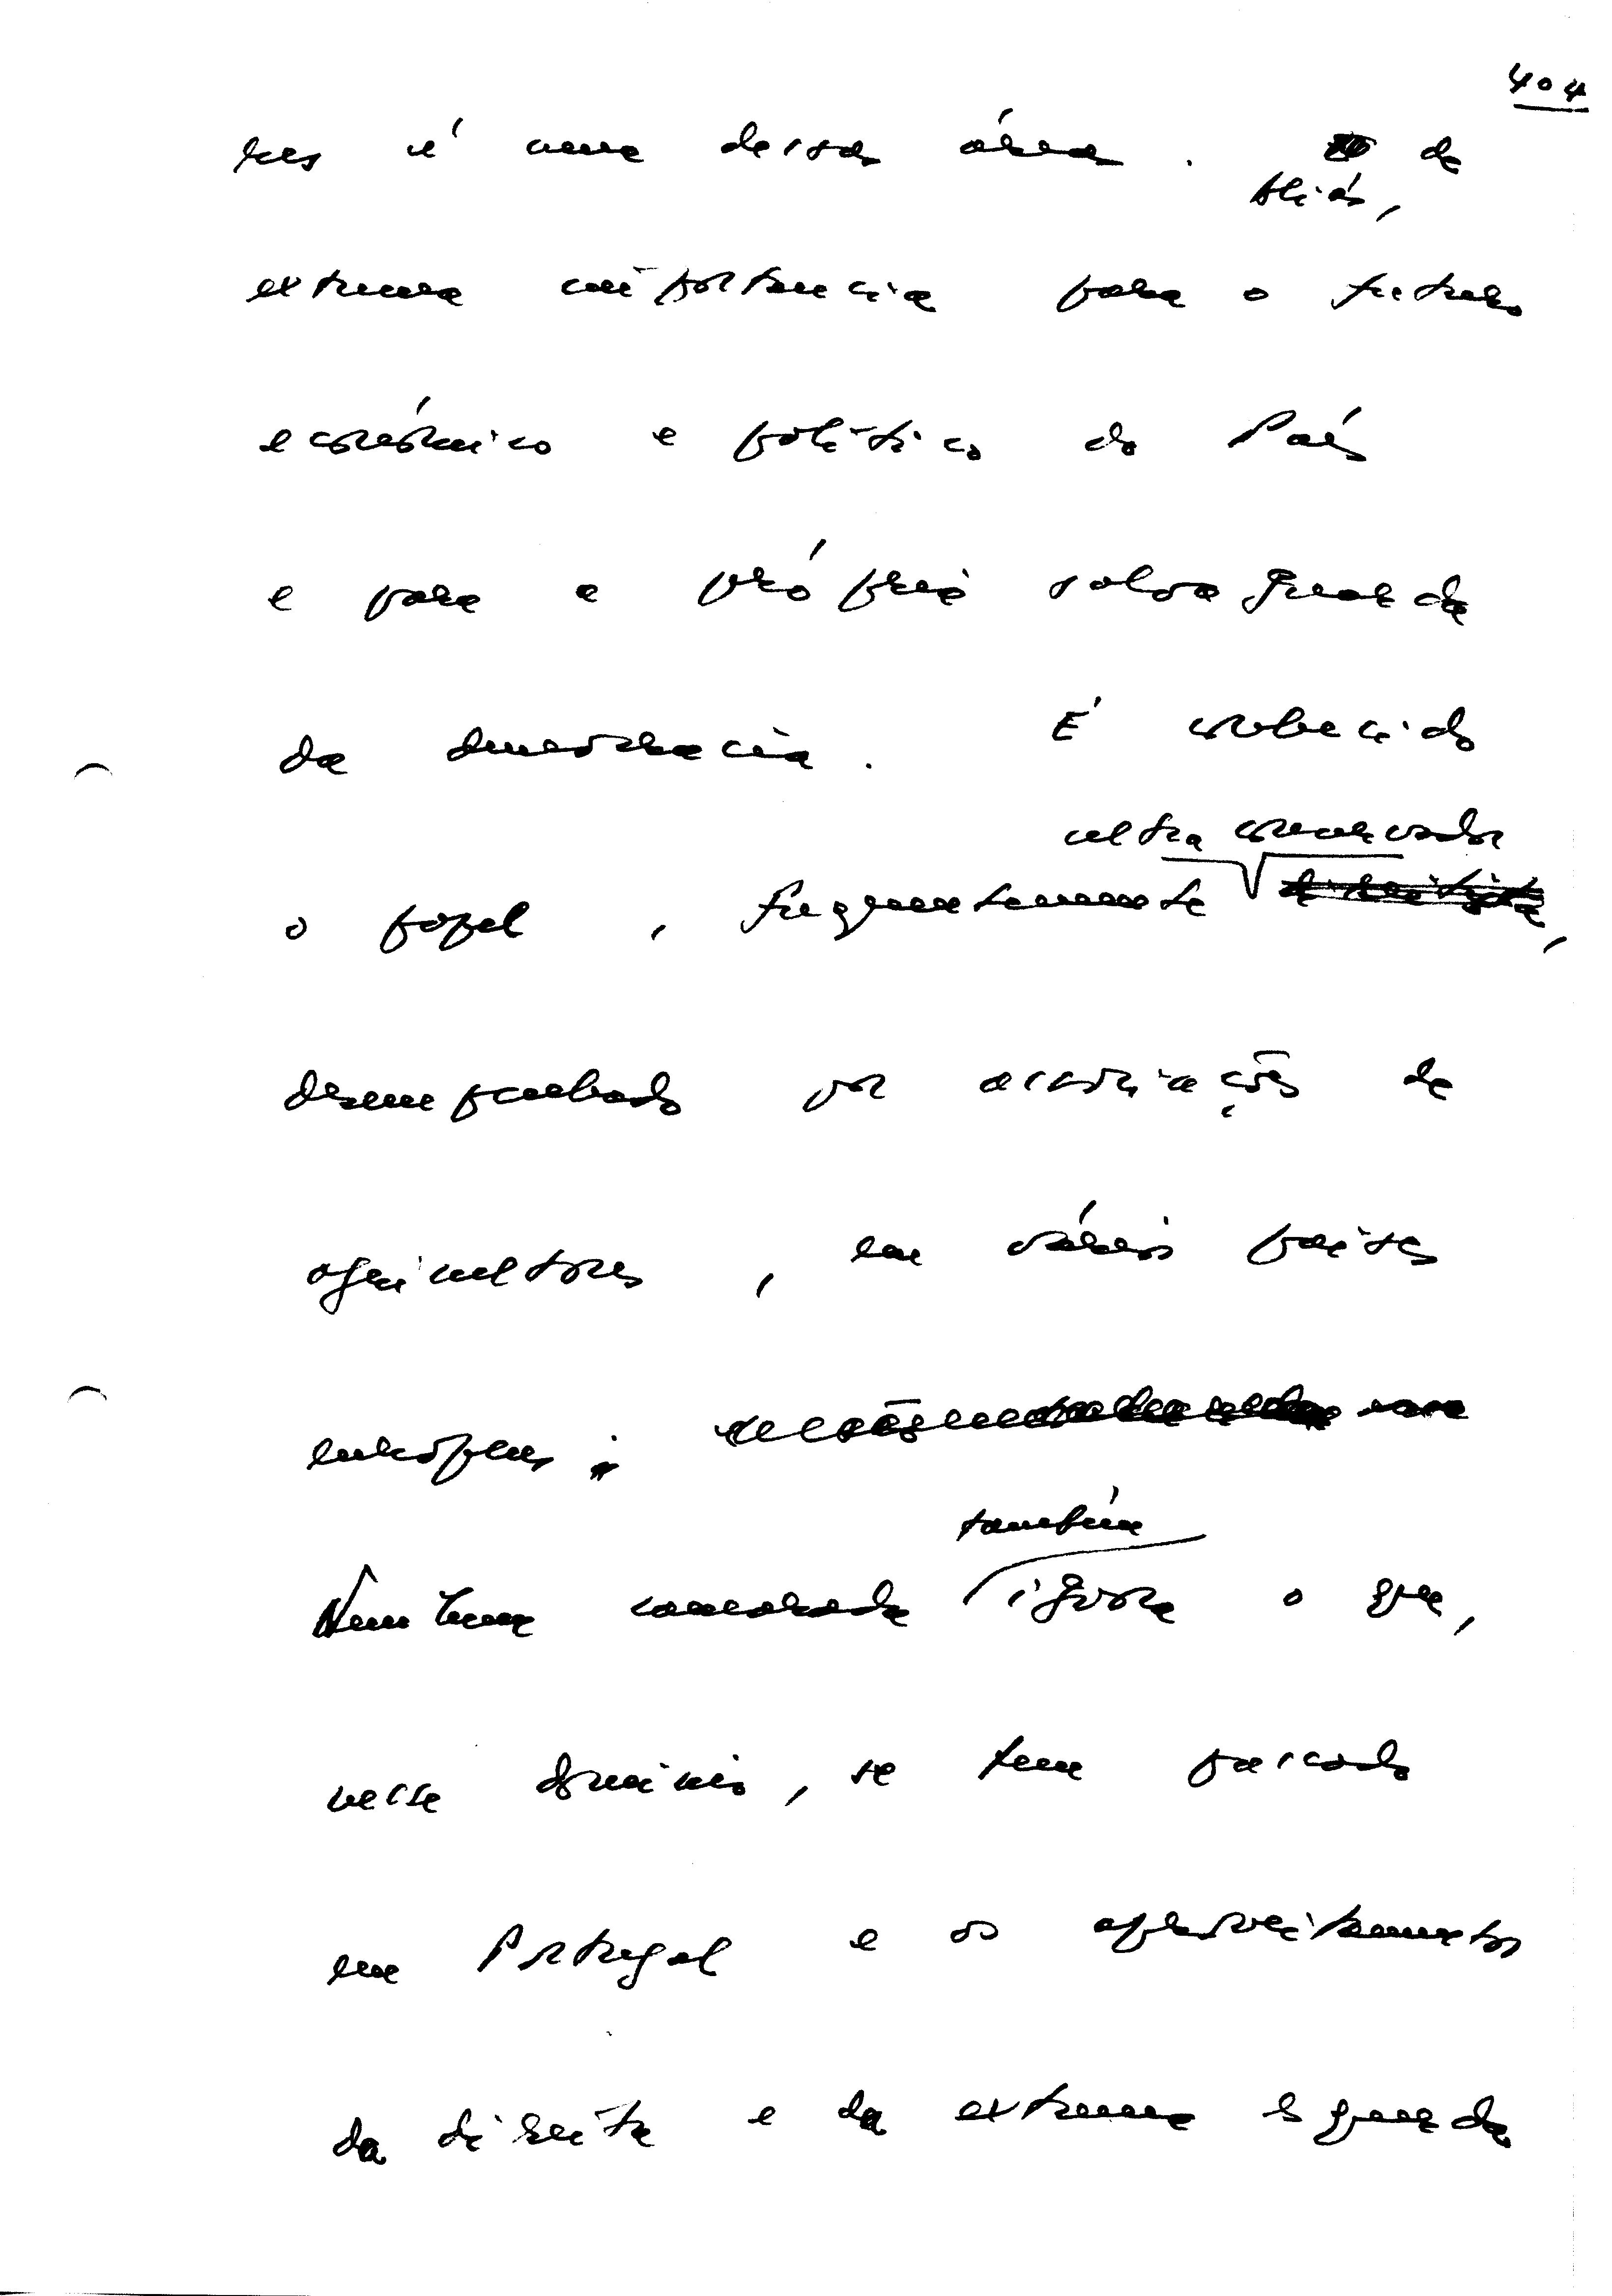 404
res é uma dessas áreas. de
Aliás,
extrema importância para o futuro
económico e político do País
e para a própria salvaguarda
da democracia. É conhecido
ultra conservador
o papel, frequentemente direitista,
desempenhado por associações de
agricultores, em vários países
europeus;
também
Nenhum camarada ignora o que,
nesse domínio, se tem passado
em Portugal e os aproveitamentos
da direita e da extrema esquerda